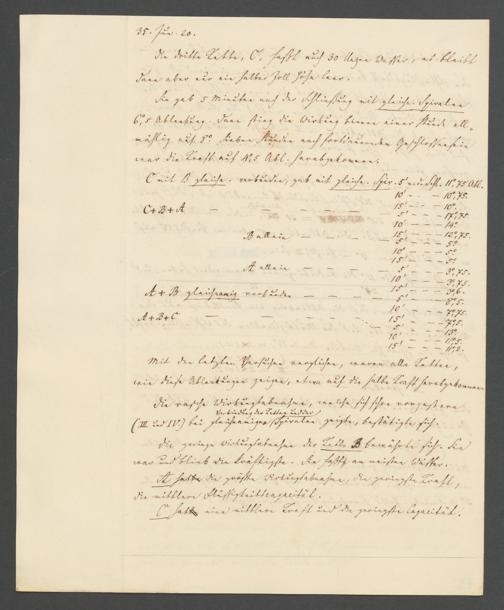 35. Jun. 20.
Die dritte Kette, C, faßt auch 30 Unzen Wasser, es bleibt
dann aber nur ein halber Zoll Höhe leer.
Sie gab 5 Minuten nach der Schließung mit gleichn. Spiralen
6°,5 Ablenkung. Dann stieg die Wirkung binnen einer Stunde all-
mählig auf 8°. Sieben Stunden nach fortdauerndem Geschlossensein
war die Kraft auf 4°,5 Abl. herabgekommen.
C mit B gleichn. verbunden, gab mit gleichn. Spir. 5' n. d. Schl. 11°,75 Abl.
10' — — 10°,75.
15' — — 10°.
C+B+A — — — — 5' — — 17°,75
10' — — 14°.
15' — — 12°,75.
B allein — — 5' — — 5°
10' — — 5°
15' — — 5°
A allein — — 5' — — 3°,75.
10' — — 3°,75.
15' — — 3°,6.
A + B gleichnamig verbunden — — — 5' — — 8°,5.
10' — — 7°,75.
15' — — 7°,5.
A+B+C — 5' — — 13°.
10' — — 11°,5.
15' — — 11°,2.
Mit den letzten Versuchen verglichen, waren alle Ketten,
wie diese Ablenkungen zeigen, etwa auf die halbe Kraft herabgekommen.
Die rasche Wirkungsabnahme, welche sich schon vorgestern
Verbindung der Ketten und der
(III und IV.) bei gleichnamigen Spiralen zeigte, bestätigte sich.
Die geringe Wirkungsabnahme der Kette B bewährte sich. Sie
war und blieb die kräftigste. Sie faßt am meisten Wasser.
A hatte die größte Wirkungsabnahme, die geringste Kraft,
die mittlere Flüssigkeitscapacität.
C hatte eine mittlere Kraft und die geringste Capacität.